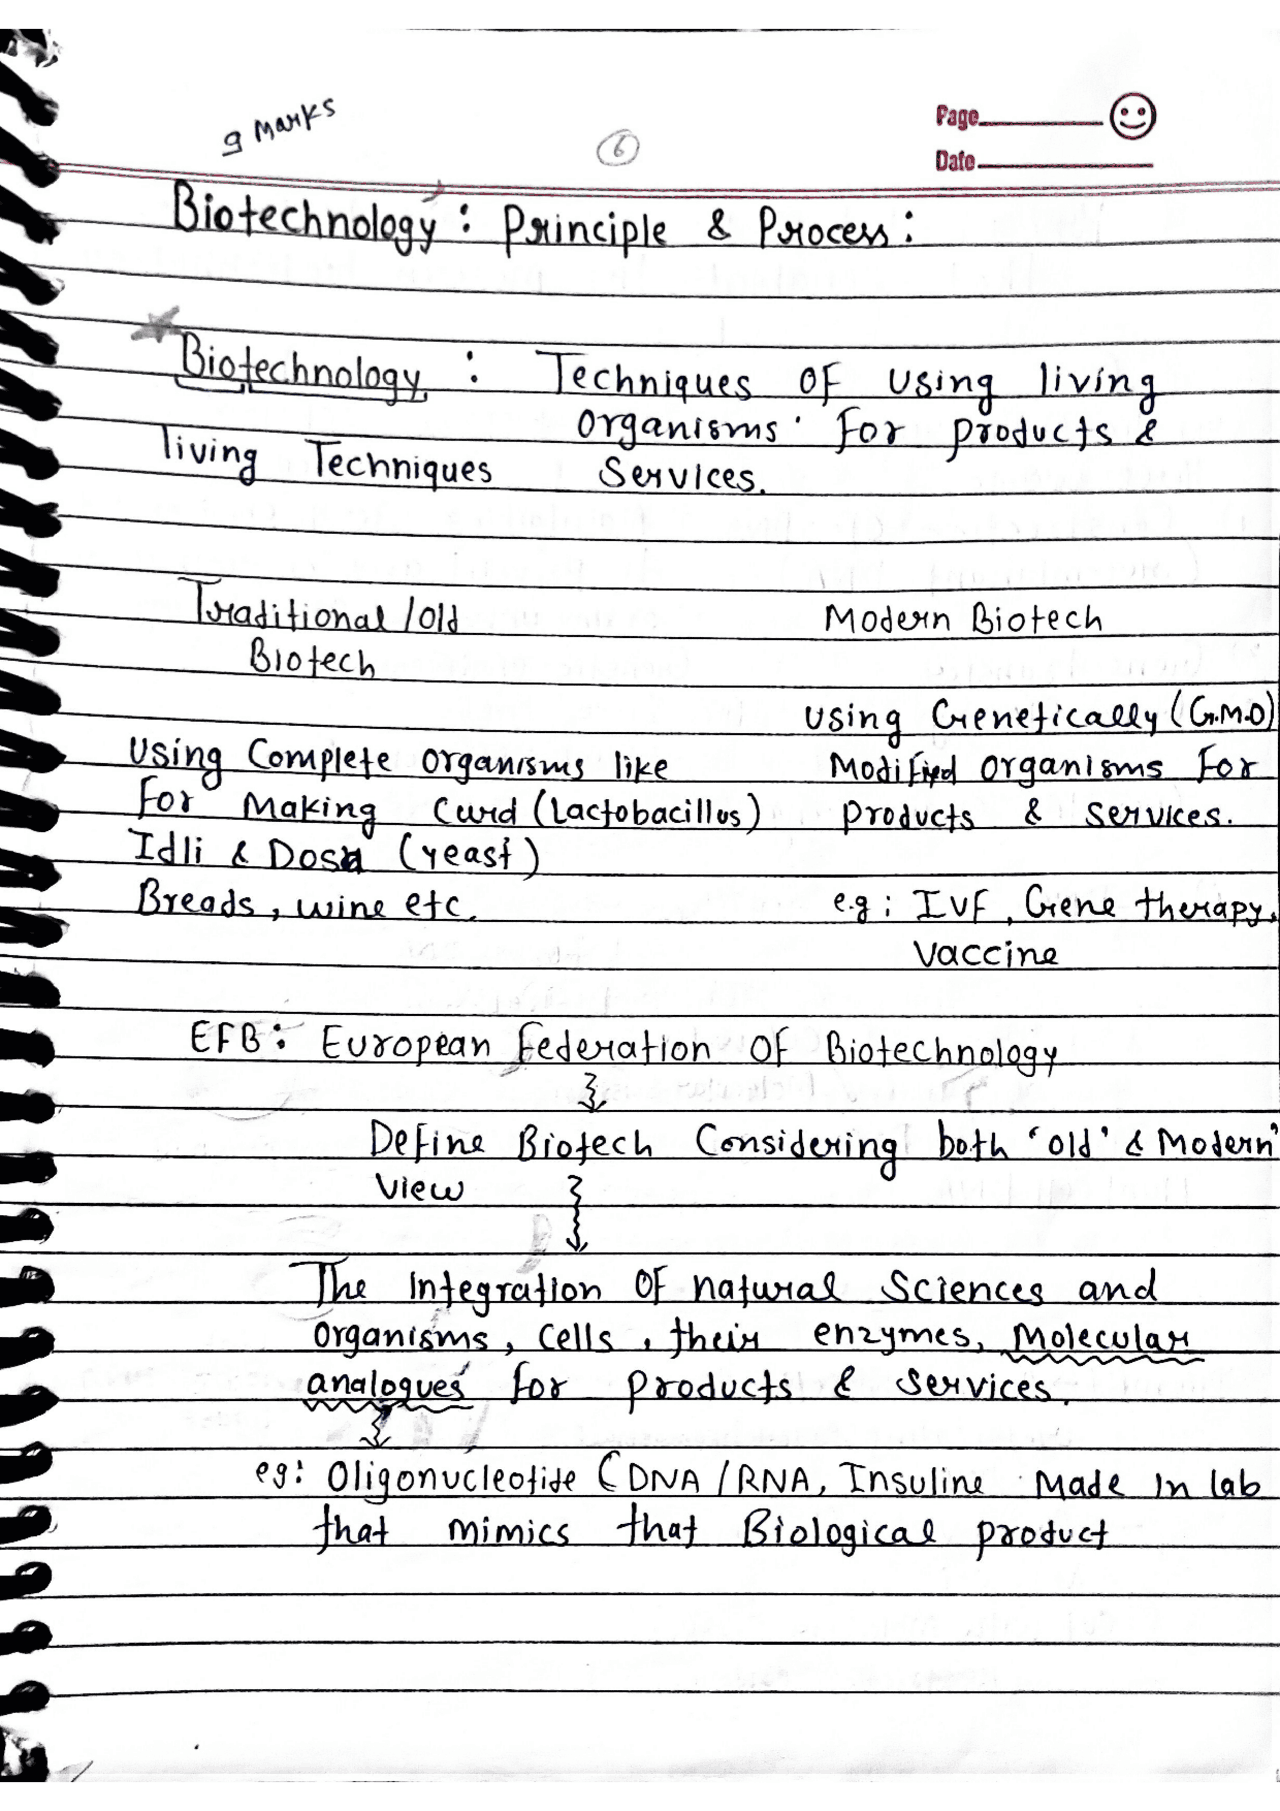 9 Marks
6
Page
Date
Biotechnology : Principle & Process :
Biotechnology : Techniques OF using living
organisms For products &
living Techniques Services.
Traditional /old Modern Biotech
Biotech
using Genetically (G.M.O)
using Complete organisms like Modified organisms For
For Making Curd (Lactobacillus) products & services.
Idli & Dosa (yeast)
Breads, wine etc. e.g : IVF, Gene therapy,
Vaccine
EFB : European Federation OF Biotechnology
Define Biotech Considering both 'old' & Modern'
view
The integration OF natural Sciences and
organisms, cells, their enzymes, Molecular
analogues for products & services.
eg: Oligonucleotide (DNA/RNA, Insuline Made in lab
that mimics that Biological product